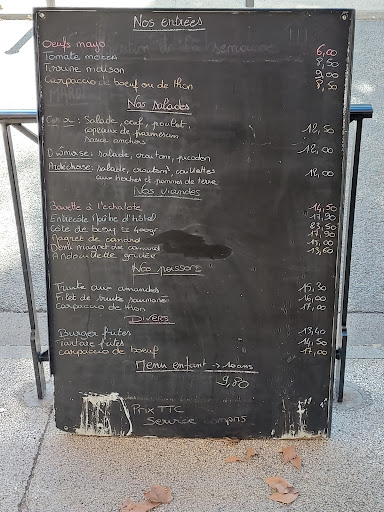 Nos entrées
Oeufs mayo 6,00
Tomate mozza 8,50
Terrine maison 9,00
Carpaccio de boeuf ou de thon 8,50
Nos salades
César : Salade, oeuf, poulet, 12,50
copeaux de parmesan
sauce anchois
Drômoise : salade, croutons, picodon 12,00
Ardéchoise : salade, croutons, caillettes 12,00
aux herbes et pommes de terre
Nos viandes
Bavette à l'échalote 14,50
Entrecôte Maître d'Hôtel 17,90
Côte de boeuf 23,50
Magret de canard 17,90
Demi magret de canard 13,00
Andouillette grillée 13,60
Nos poissons
Truite aux amandes 15,30
Filet de truite saumonée 16,00
Carpaccio de thon 17,00
Divers
Burger frites 13,40
Tartare frites 14,50
carpaccio de boeuf 17,00
Menu enfant → 10 ans
9,80
Prix TTC
Service compris